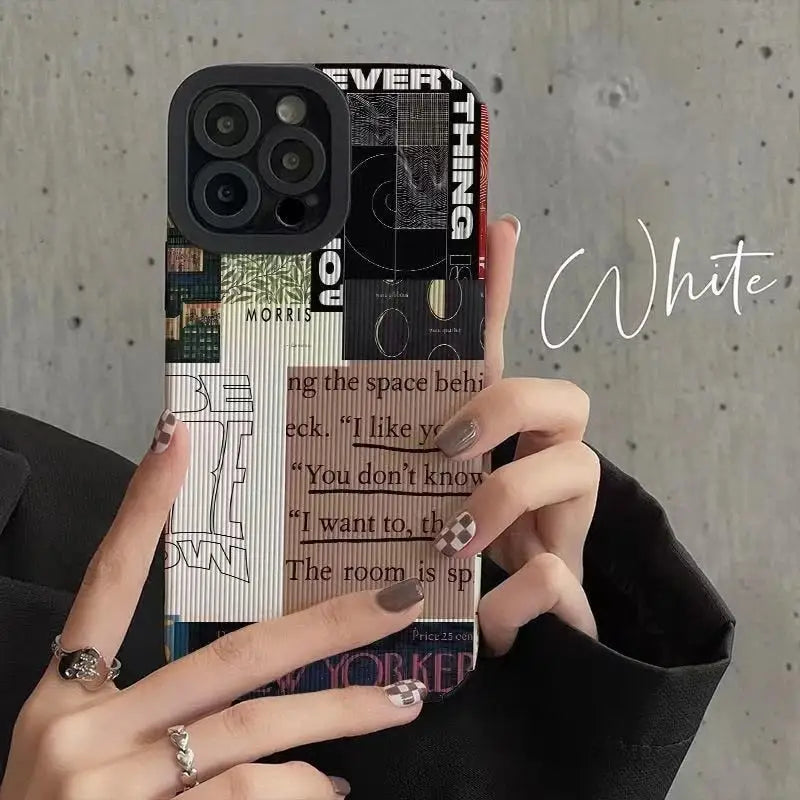 EVERY
THING
YOU
MORRIS
BE
RE
OW
ng the space behi
eck. "I like yo
"You don't know
"I want to, th
The room is sp
Price 25 cen
EW YORKER
White